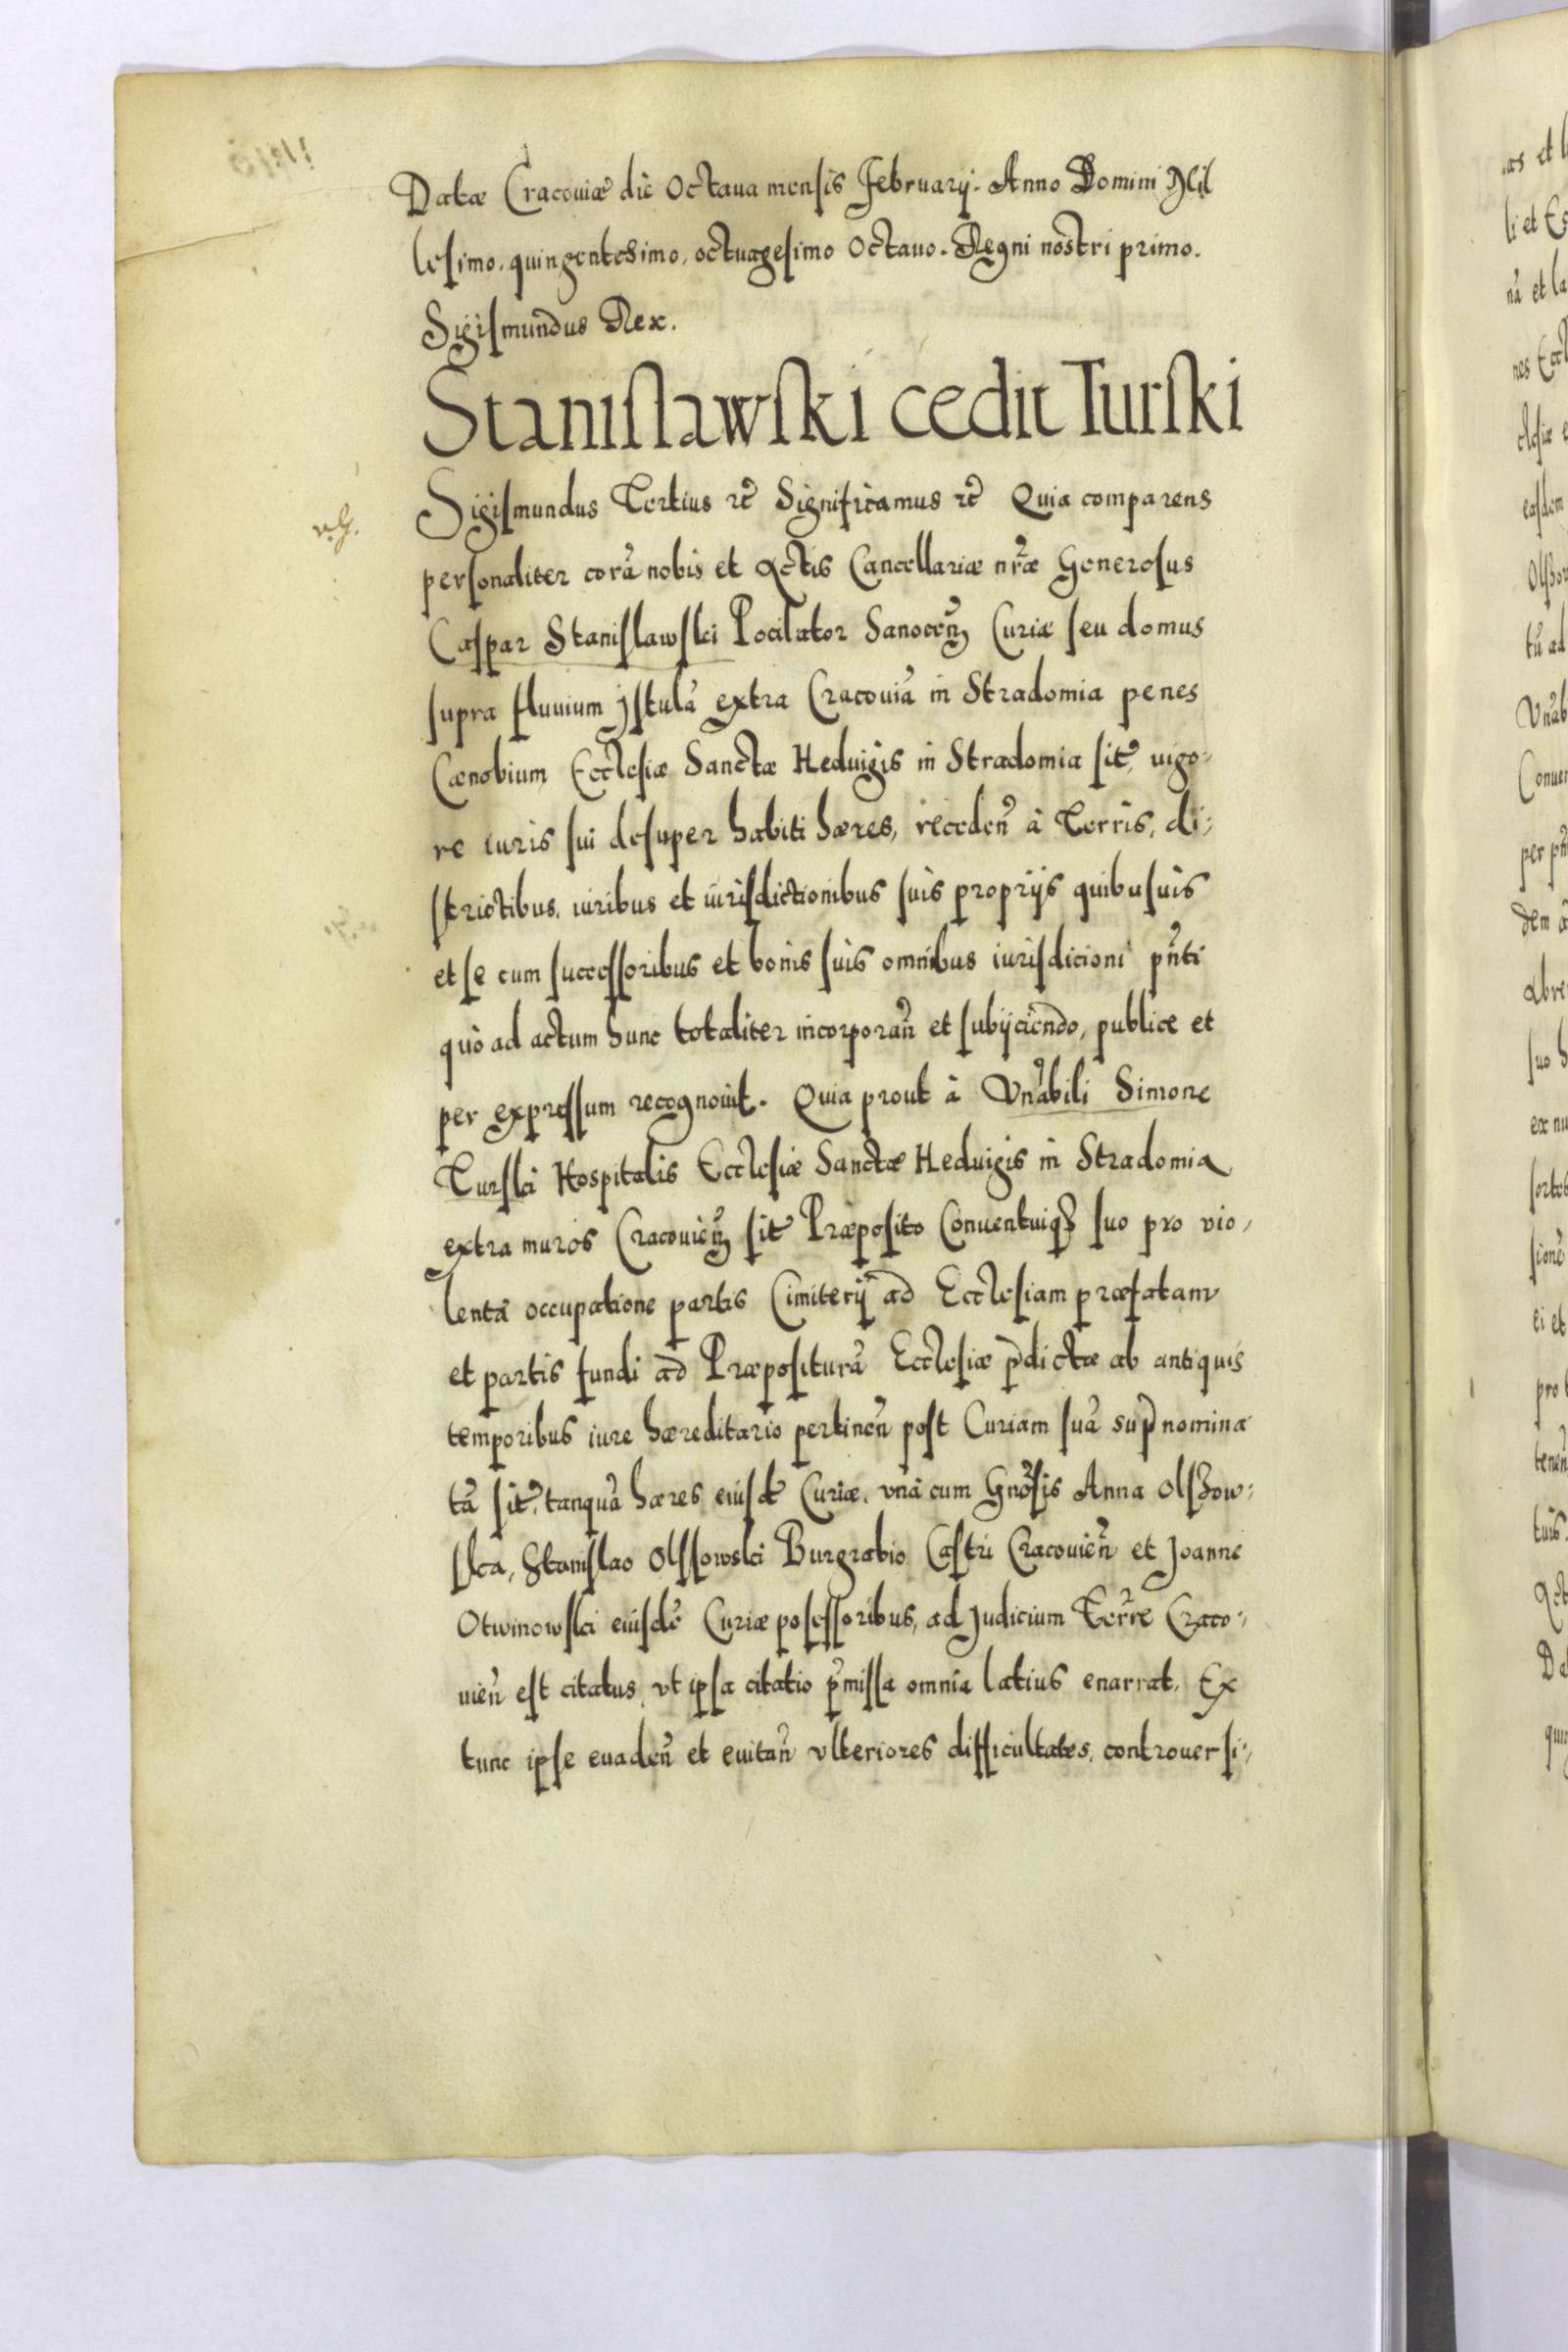 Datæ Cracouiæ die Octaua mensis February. Anno Domini Mil
lesimo. quingentesimo. octuagesimo Octauo. Regni nostri primo.
Sigismundus Rex.
Stanislawski cedit Turski
Sigismundus Tertius etc̃ Significamus etc̃ Quia comparens
personaliter corã nobis et Actis Cancellariæ nr̃æ Generosus
Caspar Stanislawski Pocilator Sanocen̄ Curiæ seu domus
supra fluuium Istulã extra Cracouiã in Stradomia penes
Cænobium Ecclesiæ Sanctæ Heduigis in Stradomia sit̃, uigo-
re iuris sui desuper habiti hæres, receden̄ à Terris, di-
strictibus, iuribus et iurisdictionibus suis proprijs quibusuis
et se cum successoribus et bonis suis omnibus iurisdicioni pn̄ti
quò ad actum hunc totaliter incorporan̄ et subijciendo, publice et
per expressum recognouit. Quia prout à Vn̄abili Simone
Turski Hospitalis Ecclesiæ Sanctæ Heduigis in Stradomia
extra muros Cracouien̄ sit̃ Præposito Conuentuiqȝ suo pro vio-
lenta occupatione partis Cimiterij ad Ecclesiam præfatam
et partis fundi ad Præpositurã Ecclesiæ p̄dictæ ab antiquis
temporibus iure hæreditario pertinen̄ post Curiam suã sup̄nomina
tã sit̃, tanquã hæres eiusdẽ Curiæ, vnà cum Gnōsis Anna Olszow-
ska, Stanislao Olssowski Burgrabio Castri Cracouien̄ et Joanne
Otwinowski eiusdẽ Curiæ possessoribus, ad Judicium Terr̃e Craco-
uien̄ est citatus, vt ipsa citatio p̄missa omnia latius enarrat. Ex
tunc ipse euaden̄ et euitan̄ vlteriores difficultates, controuersi-